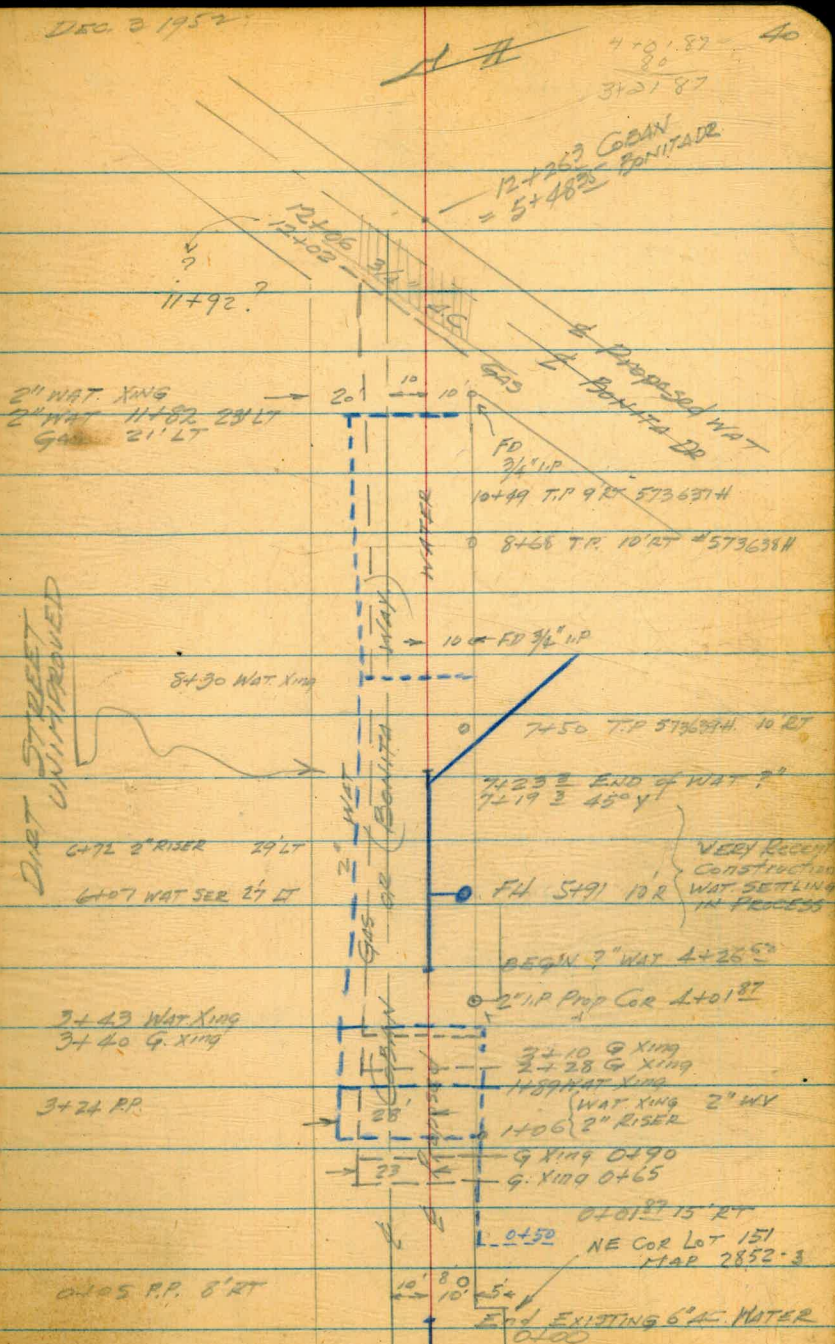 DEC. 3 1952
40
4+01.87
80
3+21.87
12+26³ COBAN
= 5+48³⁵ BONITA DR
12+06
12+02
?
11+92.?
3/4" A.C.
GAS
℄ Proposed WAT
℄ BONITA DR
2" WAT. XING
2" WAT 11+82 28' LT
GAS 21' LT
20'
10
10'
FD
3/4" I.P
10+49 T.P 9' RT 573637H
WATER
8+68 T.P. 10' RT #573638H
10
FD 3/4" I.P
8+30 WAT. Xing
DIRT STREET
UNIMPROVED
7+50 T.P 573639H 10' RT
7+23 END of WAT ?"
7+19 45° Y
VERY RECENT
Construction
WAT. SETTLING
IN PROCESS
2" WAT
GAS
COBAN OR (BONITA WAY)
6+72 2" RISER 29' LT
6+07 WAT SER 27 LT
FH 5+91 10' R
BEGIN ?" WAT 4+26⁵⁰
2" I.P Prop Cor 4+01⁸⁷
3+43 WAT Xing
3+40 G. Xing
3+10 G Xing
2+28 G Xing
1+89 WAT Xing
3+24 P.P.
28'
PROPOSED
1+06
WAT XING
2" RISER
2" WV
G Xing 0+90
G. Xing 0+65
23
℄
℄
0+01⁸⁷ 15' RT
0+50
NE COR LOT 151
MAP 2852-3
0+05 P.P. 8' RT
10'
8'
10'
5'
End EXISTING 6" AC. WATER
0+00